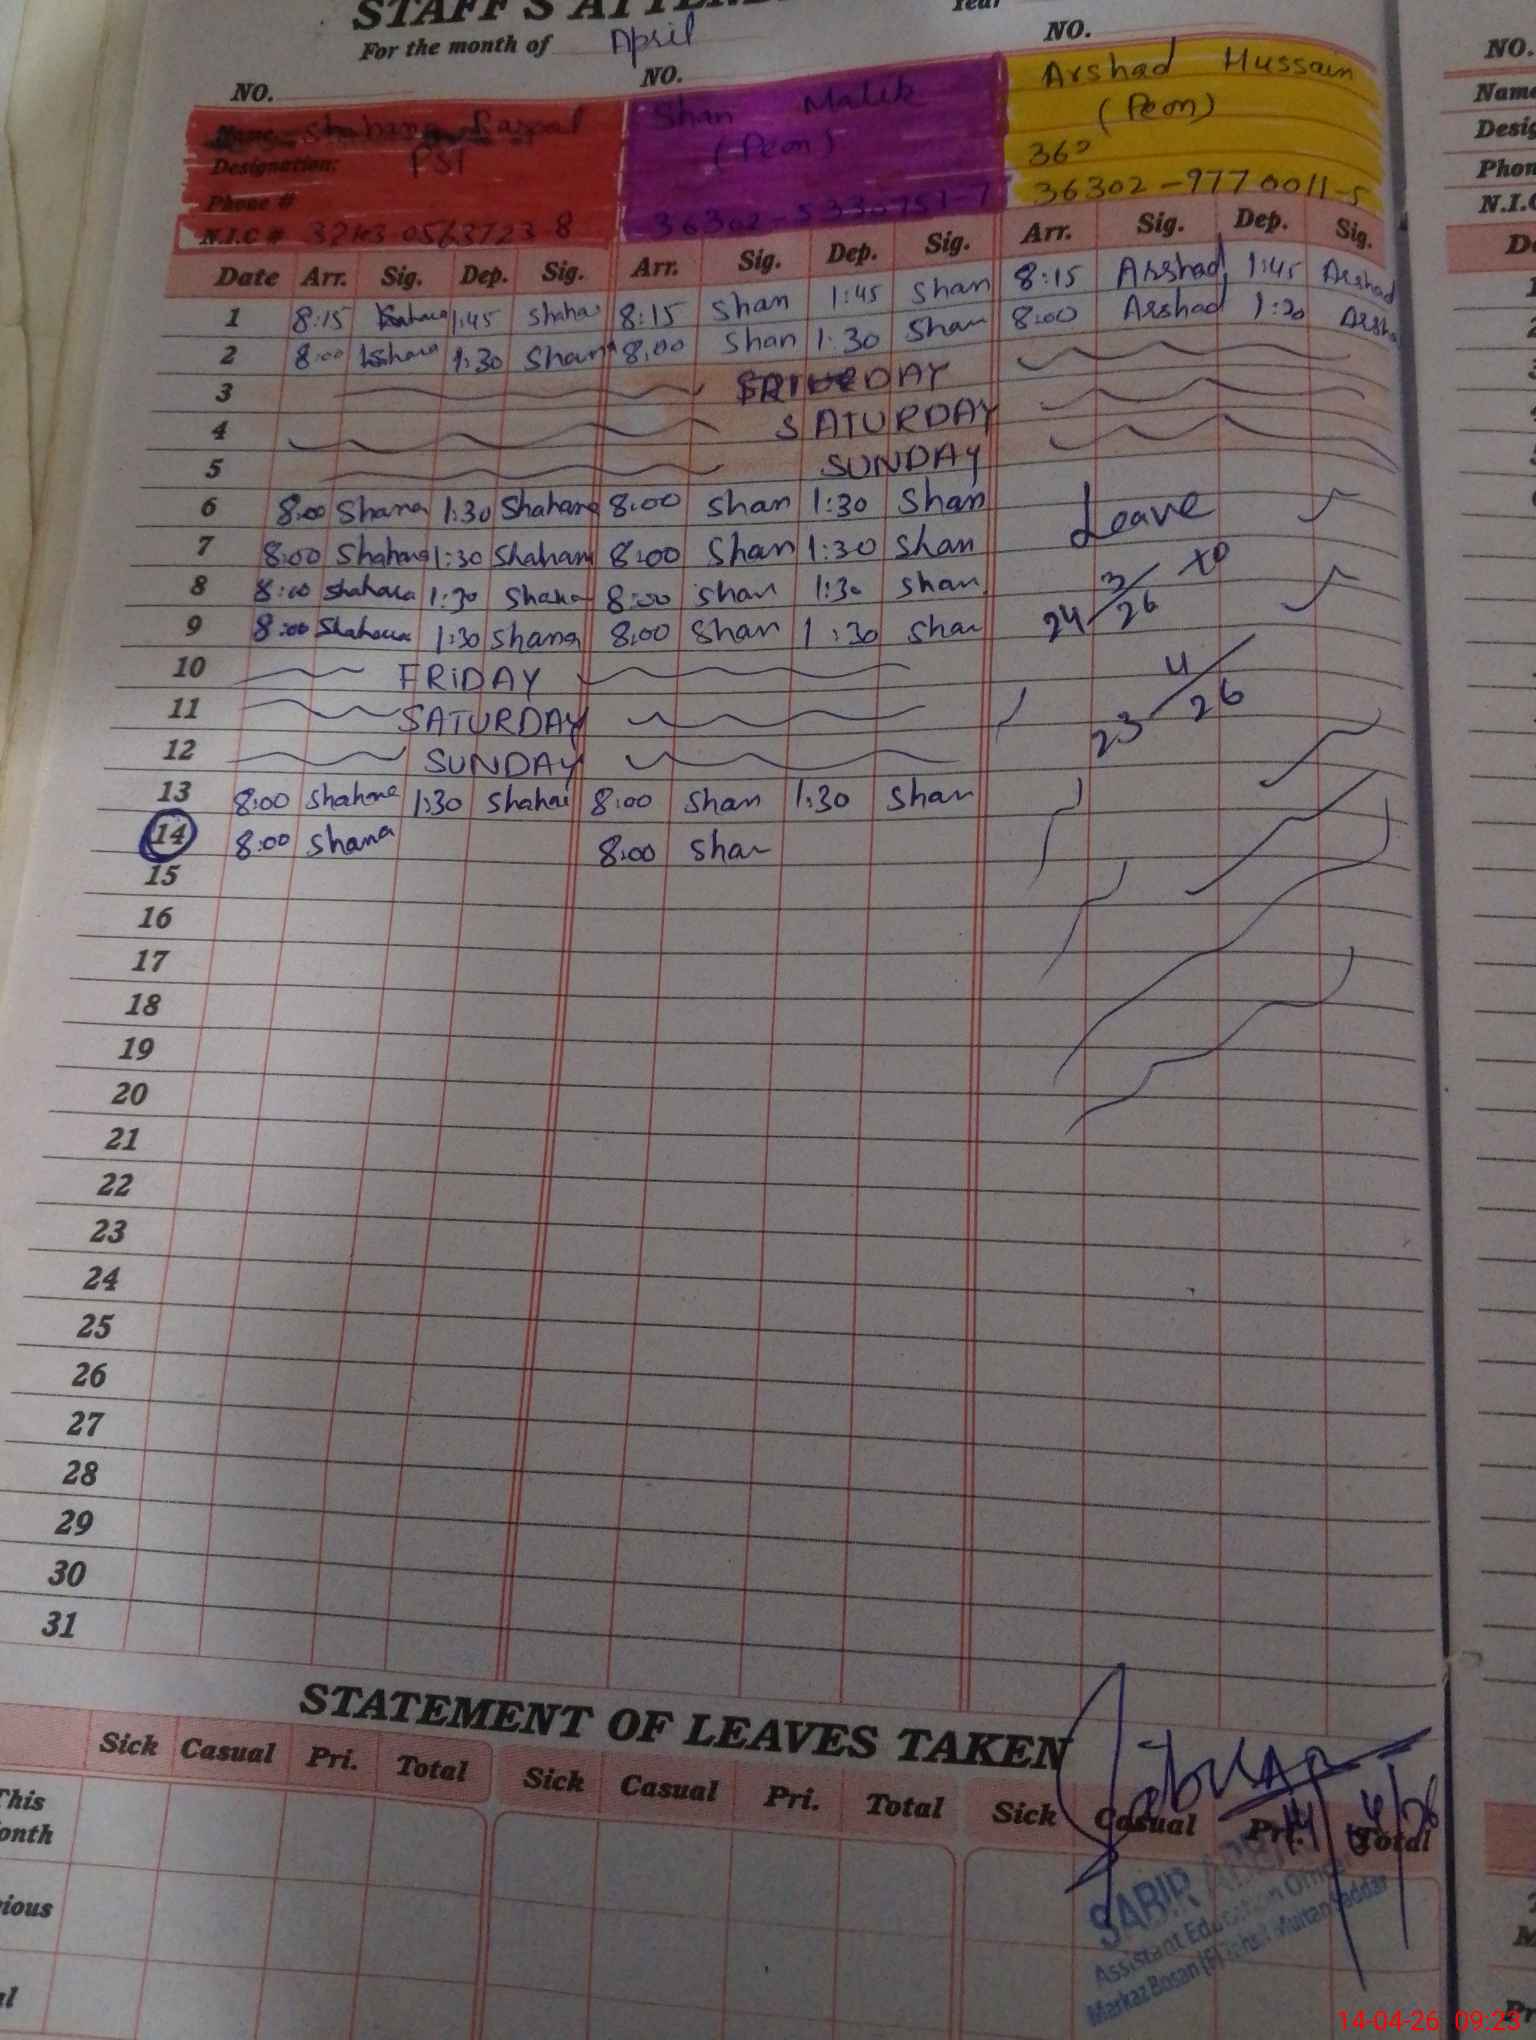 STAFF'S ATTEND
Year
For the month of April
NO. NO. NO. NO.
Name Shahana Arshad Hussain Name
Designation: PST Shan Malik (Peon) (Peon) Desig
Phone # 362 Phon
N.I.C # 36302-9770011-5 N.I.C
Date Arr. Sig. Dep. Sig. Arr. Sig. Dep. Sig. Arr. Sig. Dep. Sig.
1 8:15 1:45 Shaha 8:15 Shan 1:45 Shan 8:15 Arshad 1:45 Arshad
2 8:00 1:30 Shana 8:00 Shan 1:30 Shan 8:00 Arshad 1:30 Arsha
3 DAY
4 SATURDAY
5 SUNDAY
6 8:00 Shana 1:30 Shahana 8:00 Shan 1:30 Shan Leave
7 8:00 Shahana 1:30 Shahana 8:00 Shan 1:30 Shan
8 8:00 Shahana 1:30 Shana 8:00 Shan 1:30 Shan 24/3/26 to
9 8:00 Shahana 1:30 Shana 8:00 Shan 1:30 Shan
10 FRIDAY 23/4/26
11 SATURDAY
12 SUNDAY
13 8:00 Shahana 1:30 Shahai 8:00 Shan 1:30 Shan
14 8:00 Shana 8:00 Shan
15
16
17
18
19
20
21
22
23
24
25
26
27
28
29
30
31
STATEMENT OF LEAVES TAKEN
Sick Casual Pri. Total Sick Casual Pri. Total Sick Casual Pri. Total
This
onth
14/4/26
SABIR
vious
Assistant Education Officer
Markaz Bosan (F) Tehsil Multan Saddar
al
14-04-26 09:23